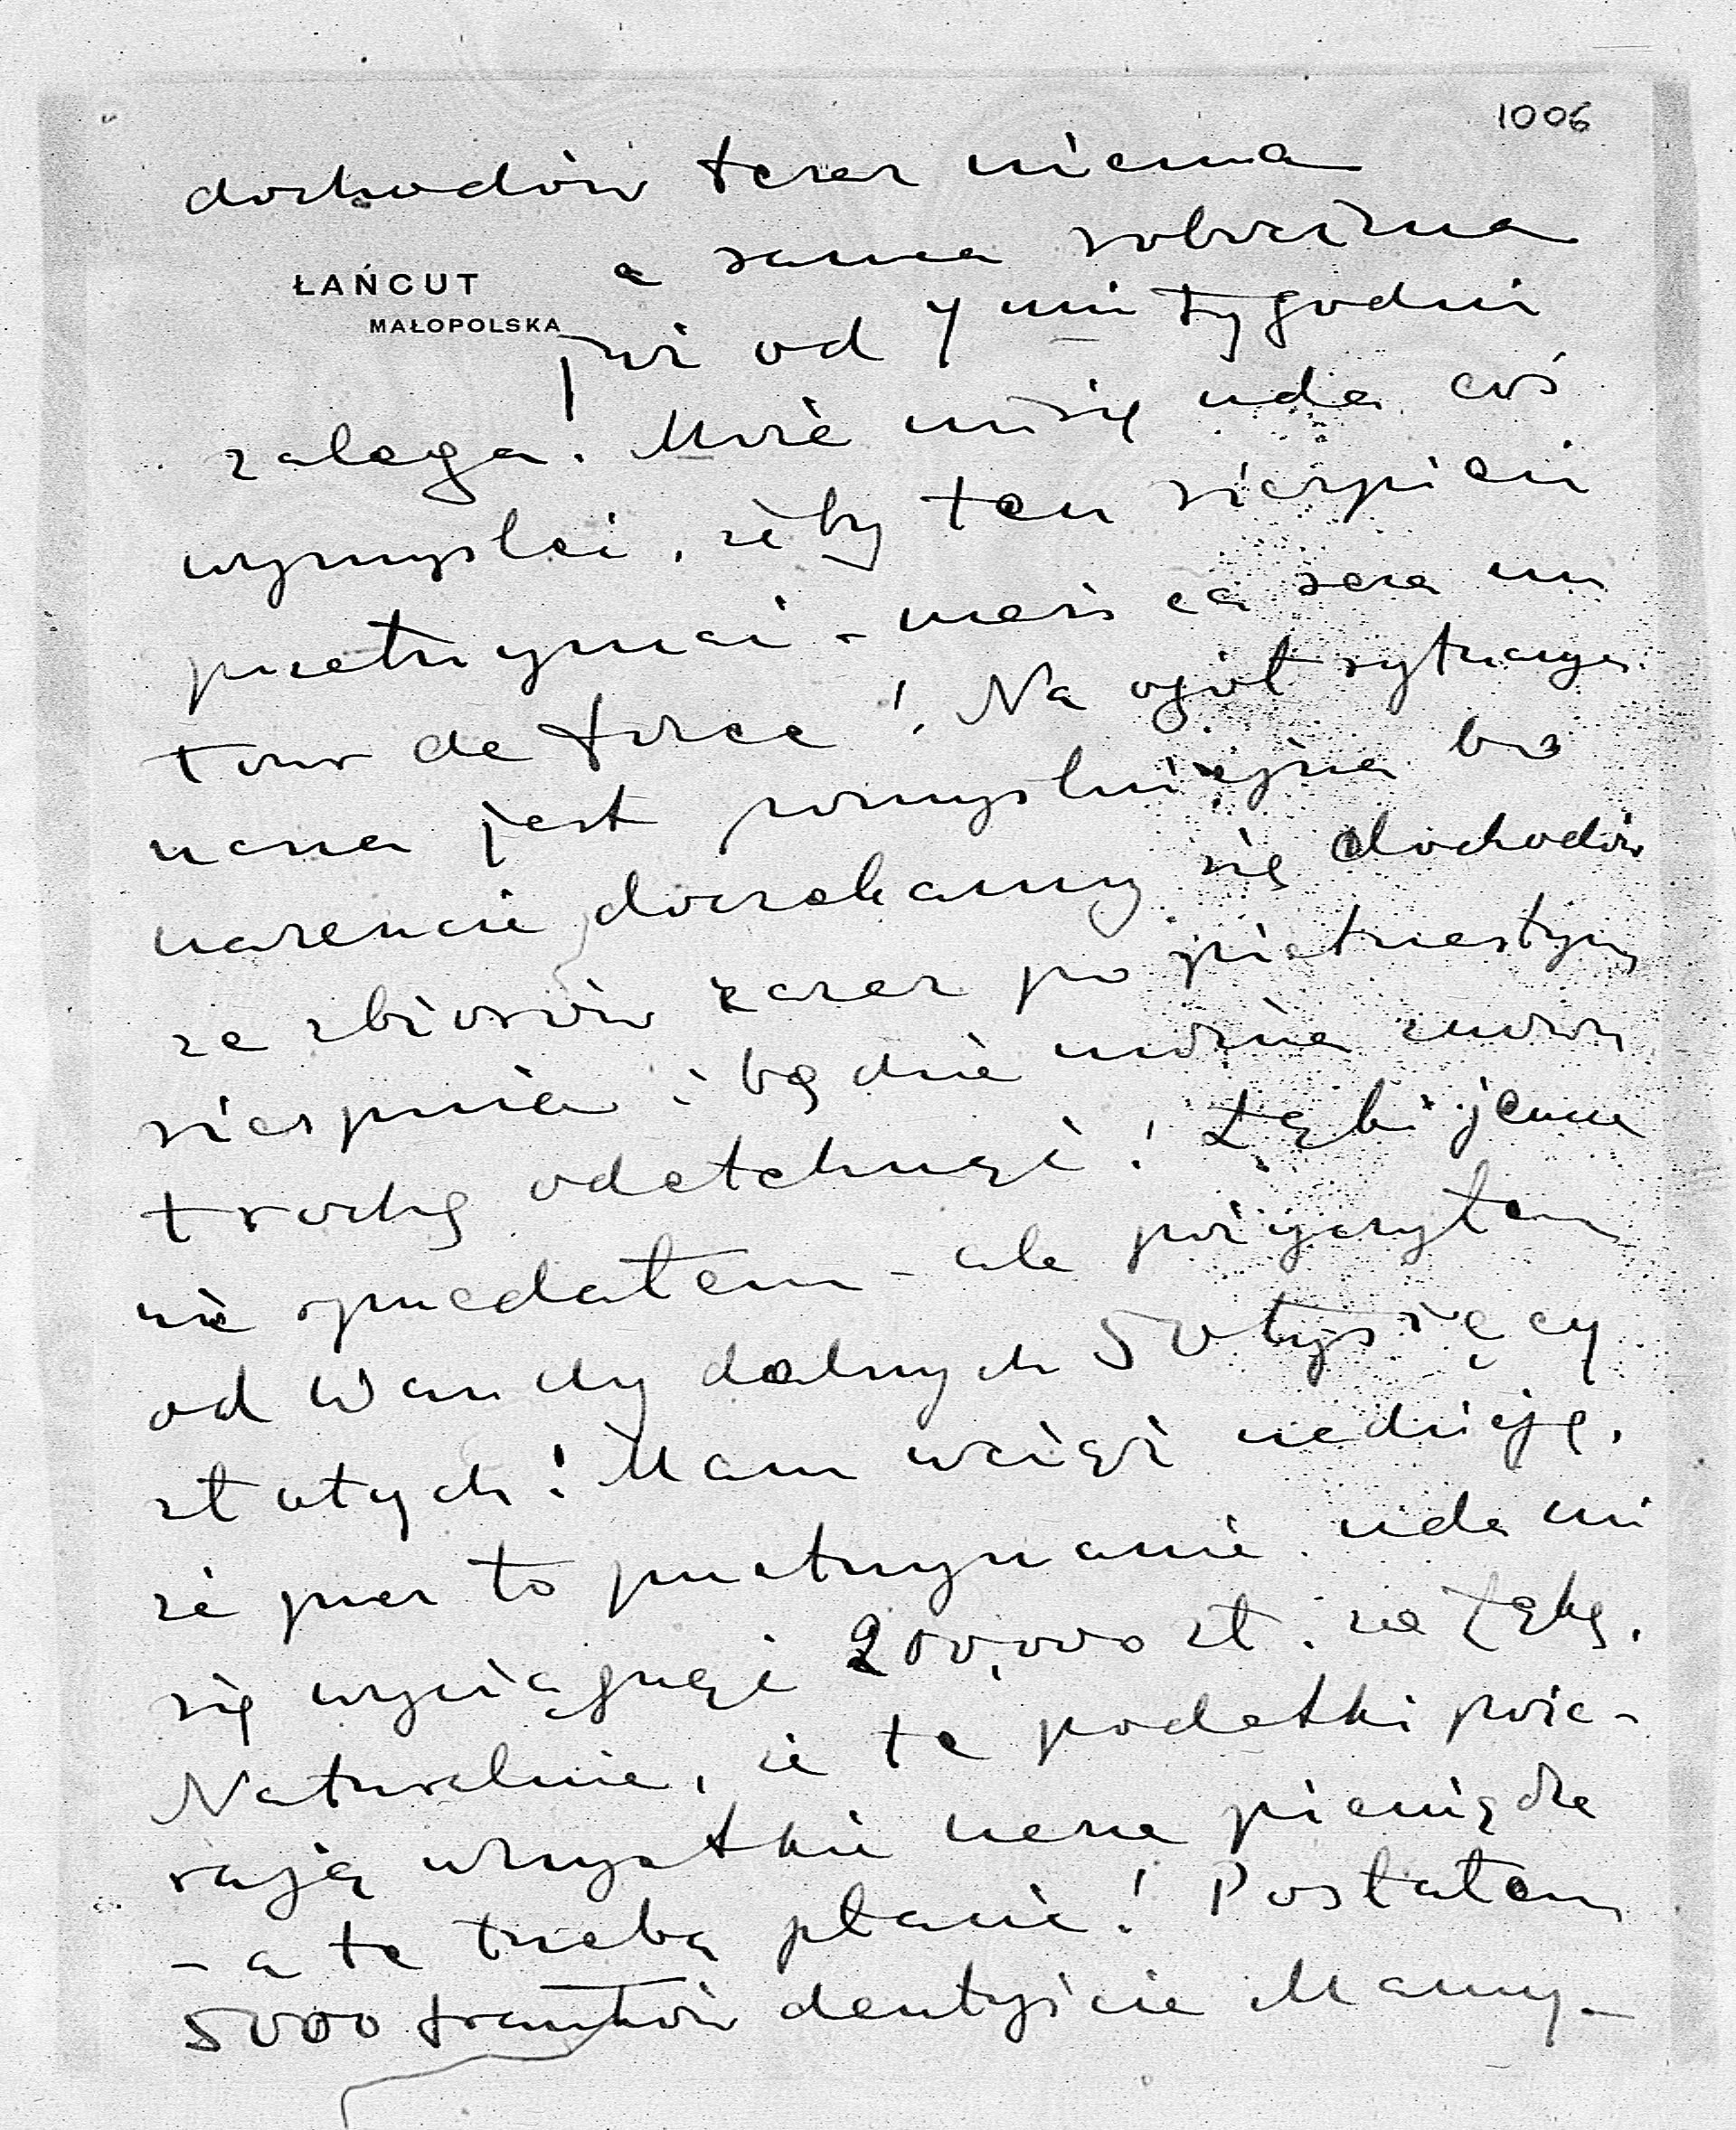 1006
dochodów teraz niema
a sama robocizna
ŁAŃCUT
MAŁOPOLSKA
już od 4 mi tygodni
zalega. Może mi się uda coś
wymyśleć, żeby ten sierpień
przetrzymać - mais ca sera un
tour de force! Na ogół sytuacya
nasza jest pomyślniejsza bo
nareszcie doczekamy się dochodów
ze zbiorów zaraz po piętnastym
sierpnia i będzie można znowu
trochę odetchnąć! Łąki jeszcze
nie sprzedałem - ale pożyczyłem
od Wandy dalszych 50 tysięcy
złotych! Mam wciąż nadzieję,
że przez to przetrzymanie uda mi
się wyciągnąć 200,000 zł. za Łąkę.
Naturalnie, że te podatki poże-
rają wszystkie nasze pieniądze
- a te trzeba płacić! Posłałem
5000 franków dentyście Mamy -